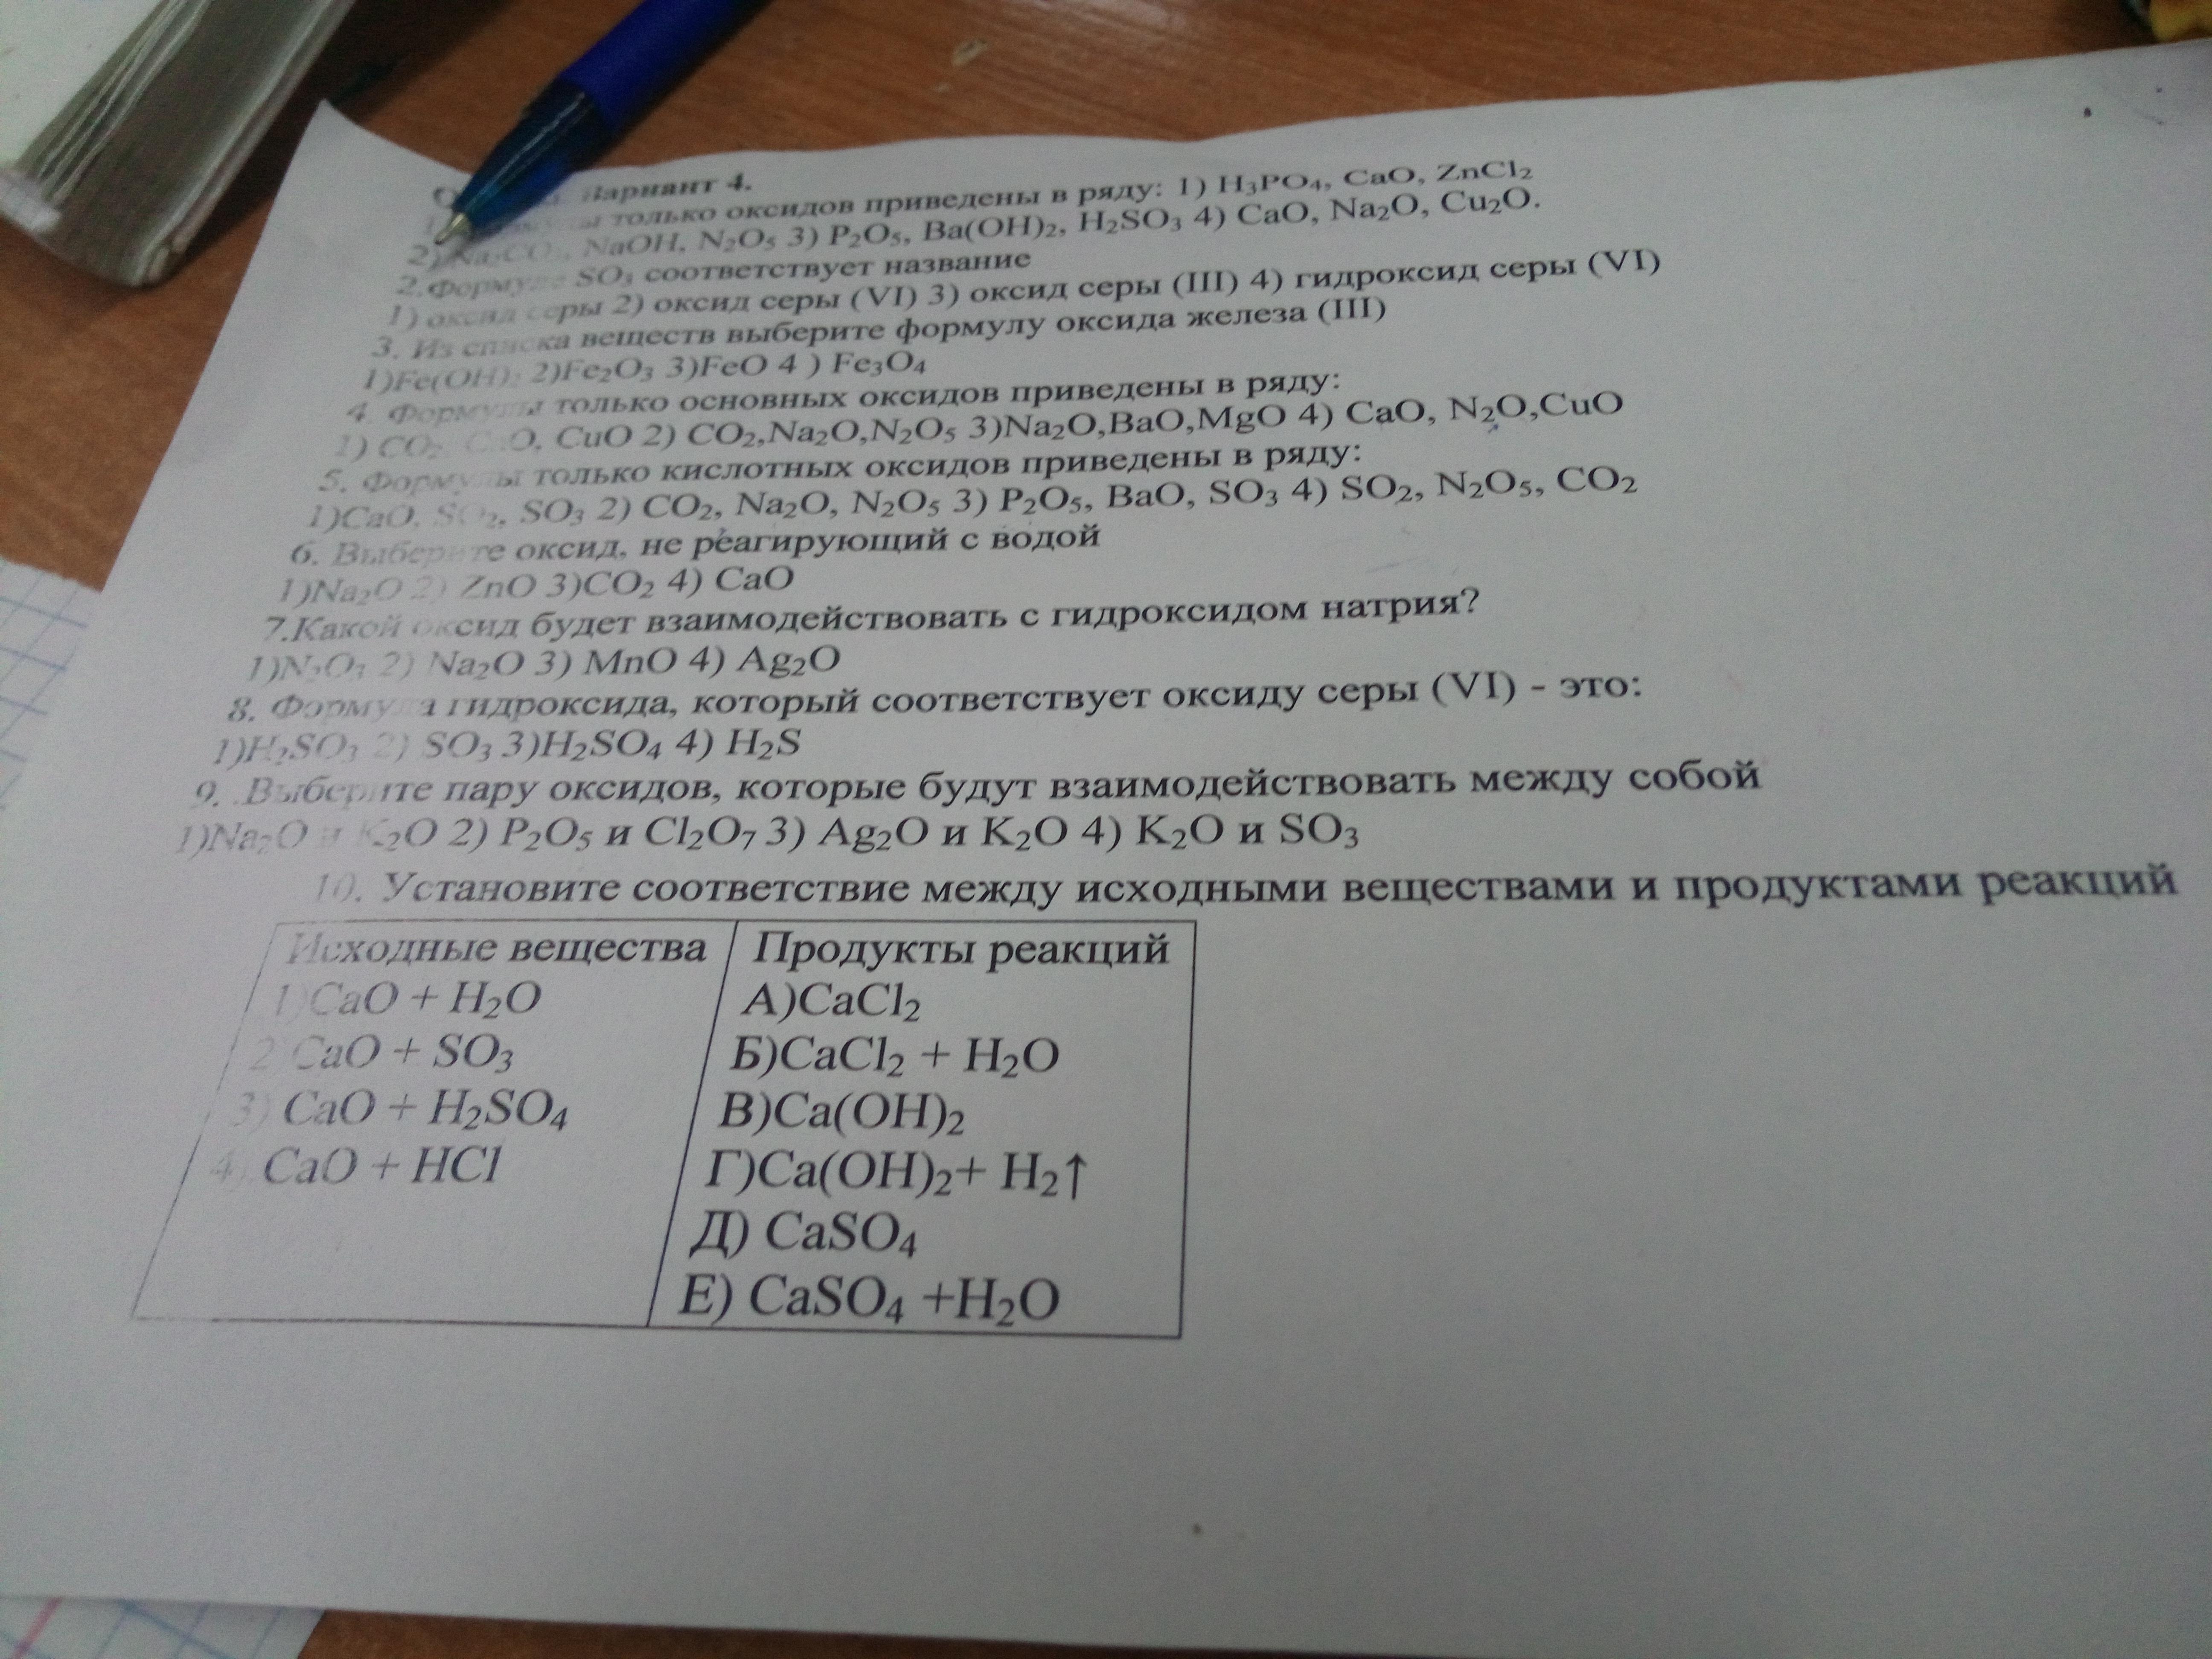 Вариант 4.
только оксидов приведены в ряду: 1) H₃PO₄, CaO, ZnCl₂
2) Na₂CO₃, NaOH, N₂O₅ 3) P₂O₅, Ba(OH)₂, H₂SO₃ 4) CaO, Na₂O, Cu₂O.
2.Формуле SO₃ соответствует название
1) оксид серы 2) оксид серы (VI) 3) оксид серы (III) 4) гидроксид серы (VI)
3. Из списка веществ выберите формулу оксида железа (III)
1)Fe(OH)₂ 2)Fe₂O₃ 3)FeO 4 ) Fe₃O₄
4. Формулы только основных оксидов приведены в ряду:
1) CO₂, CaO, CuO 2) CO₂,Na₂O,N₂O₅ 3)Na₂O,BaO,MgO 4) CaO, N₂O,CuO
5. Формулы только кислотных оксидов приведены в ряду:
1)CaO, SO₂, SO₃ 2) CO₂, Na₂O, N₂O₅ 3) P₂O₅, BaO, SO₃ 4) SO₂, N₂O₅, CO₂
6. Выберите оксид, не реагирующий с водой
1)Na₂O 2) ZnO 3)CO₂ 4) CaO
7.Какой оксид будет взаимодействовать с гидроксидом натрия?
1)N₂O₃ 2) Na₂O 3) MnO 4) Ag₂O
8. Формула гидроксида, который соответствует оксиду серы (VI) - это:
1)H₂SO₃ 2) SO₃ 3)H₂SO₄ 4) H₂S
9. .Выберите пару оксидов, которые будут взаимодействовать между собой
1)Na₂O и K₂O 2) P₂O₅ и Cl₂O₇ 3) Ag₂O и K₂O 4) K₂O и SO₃
10. Установите соответствие между исходными веществами и продуктами реакций
Исходные вещества Продукты реакций
1)CaO + H₂O А)CaCl₂
2 CaO + SO₃ Б)CaCl₂ + H₂O
3) CaO + H₂SO₄ В)Ca(OH)₂
4) CaO + HCl Г)Ca(OH)₂+ H₂↑
Д) CaSO₄
Е) CaSO₄ +H₂O